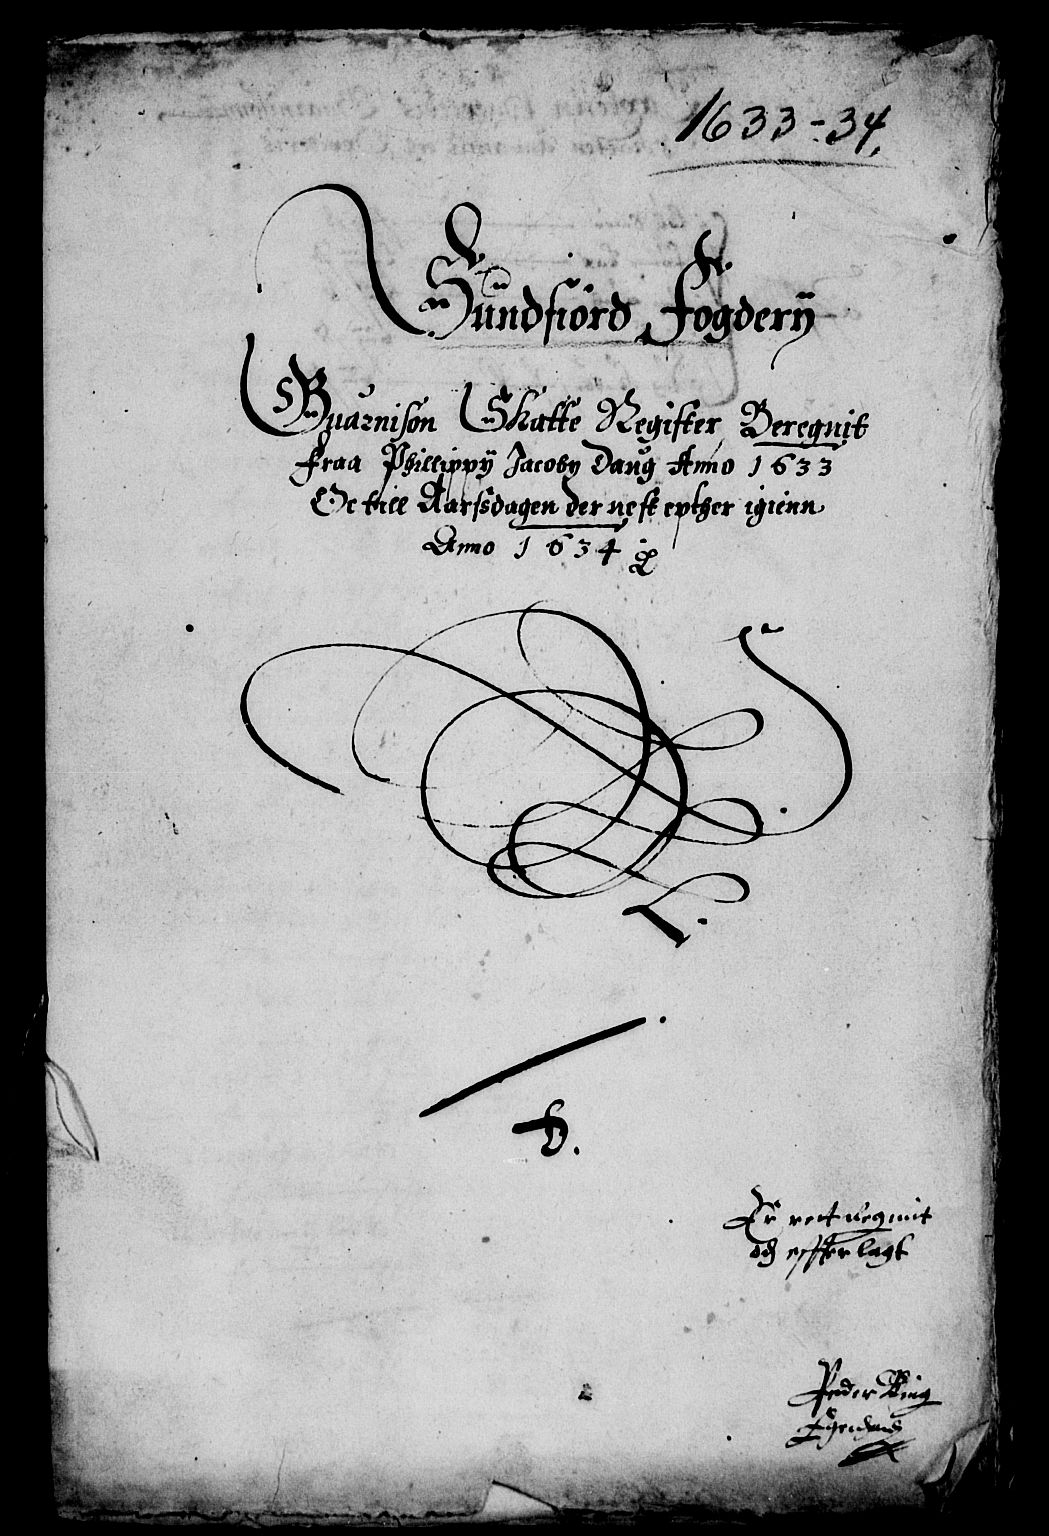 1633-34.
Sundfiord Fogderÿ
Guarnison Skatte Register Beregnit
fraa Phillippÿ Jacoby Daug Anno 1633
Oc till Aarsdagen der nest epther igienn
Anno 1634
Er ret regnit
och effterlagt
Peder